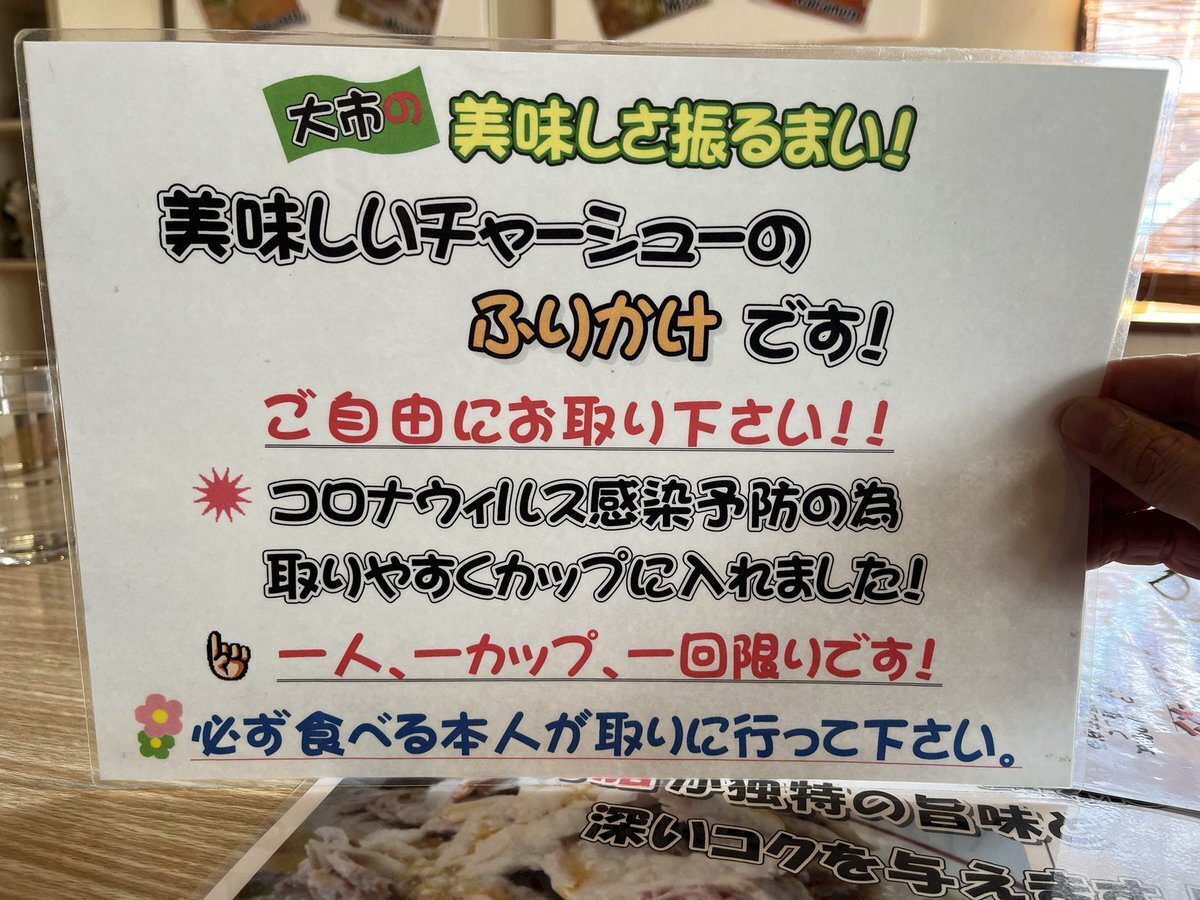 大市の 美味しさ振るまい!
美味しいチャーシューの
ふりかけ です!
ご自由にお取り下さい!!
コロナウィルス感染予防の為
取りやすくカップに入れました!
一人、一カップ、一回限りです!
必ず食べる本人が取りに行って下さい。
が独特の旨味と
深いコクを与えます